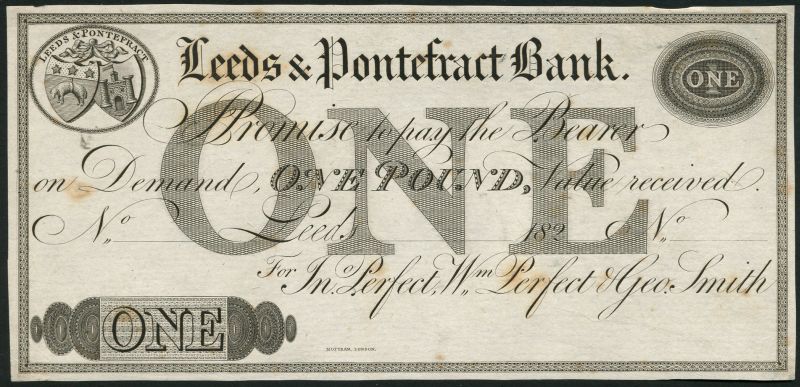 LEEDS & PONTEFRACT
Leeds & Pontefract Bank.
ONE
ONE
I Promise to pay the Bearer
on Demand, ONE POUND, Value received.
No Leeds 182 No
For Jno. Perfect, Wm Perfect & Geo. Smith
ONE
MOTTRAM, LONDON.